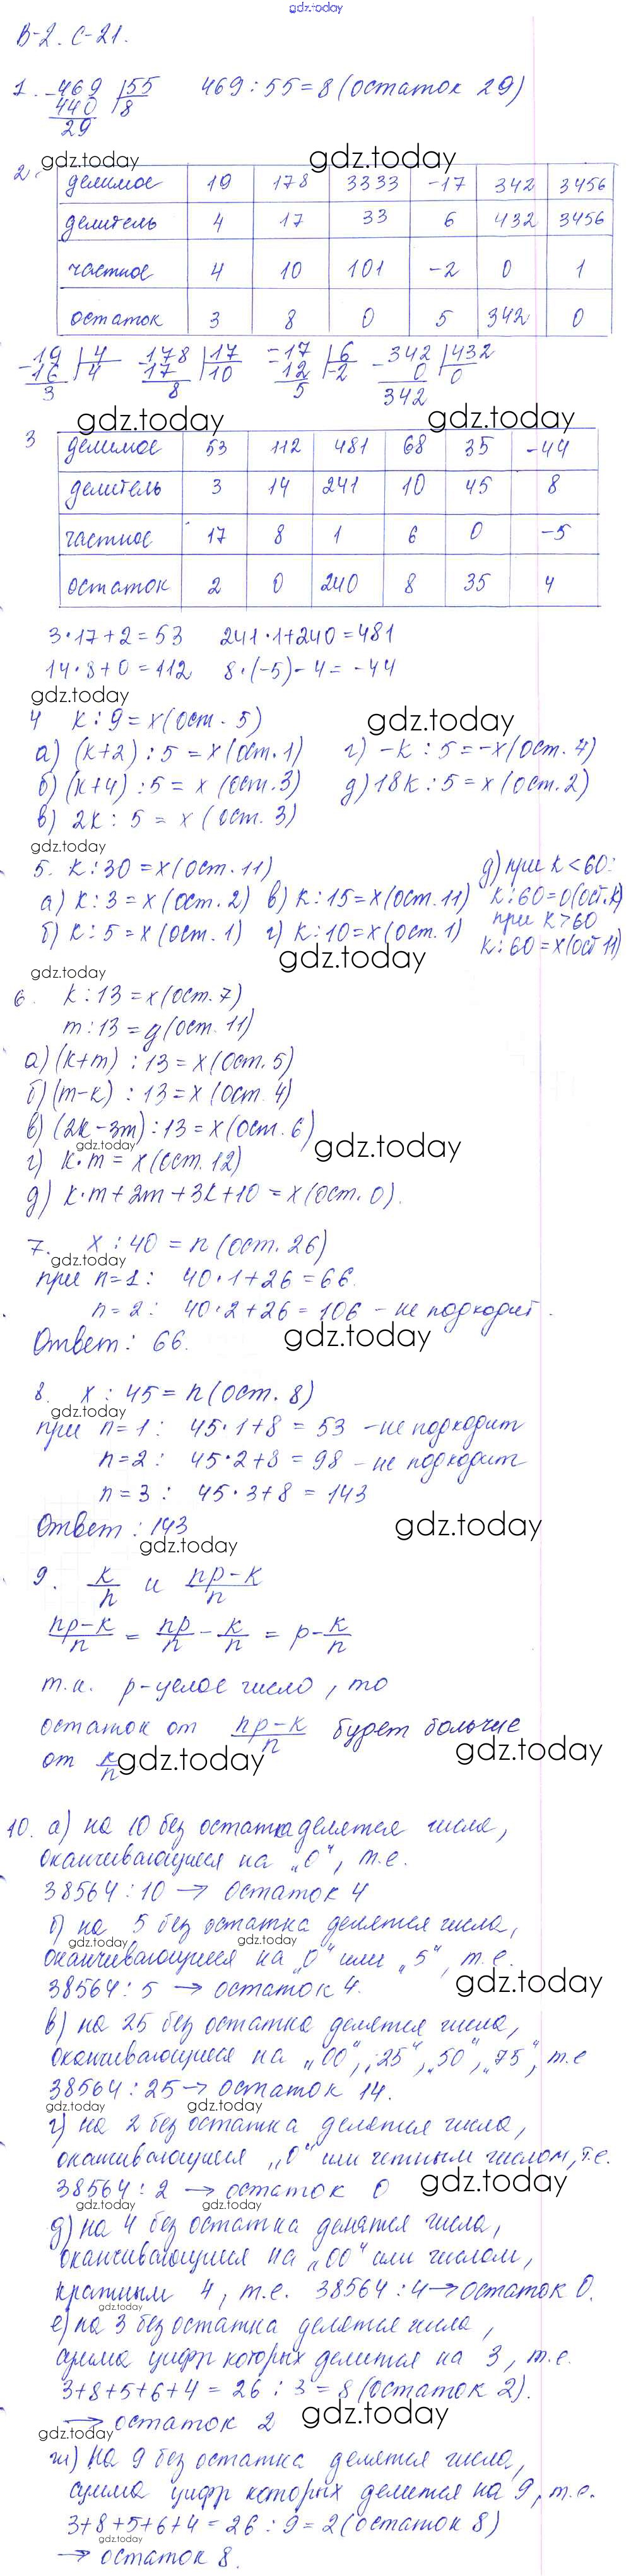 gdz.today
В-2. С-21.
1. 469 | 55   469 : 55 = 8 (остаток 29)
440 | 8
29
gdz.today gdz.today
2. делимое 19 178 3333 -17 342 3456
делитель 4 17 33 6 432 3456
частное 4 10 101 -2 0 1
остаток 3 8 0 5 342 0
-19 | 4 -178 | 17 -17 | 6 -342 | 432
16 | 4 17 | 10 12 | -2 0 | 0
3 8 5 342
gdz.today gdz.today
3 делимое 53 112 481 68 35 -44
делитель 3 14 241 10 45 8
частное 17 8 1 6 0 -5
остаток 2 0 240 8 35 4
3·17+2=53 241·1+240=481
14·8+0=112 8·(-5)-4=-44
gdz.today
4 k:9=x(ост. 5) gdz.today
а) (k+2):5=x(ост.1) г) -k:5=-x(ост.4)
б) (k+4):5=x (ост.3) д) 18k:5=x(ост.2)
в) 2k:5=x (ост.3)
gdz.today
5. k:30=x(ост.11) д) при k<60:
а) k:3=x(ост.2) в) k:15=x(ост.11) k:60=0(ост.k)
б) k:5=x(ост.1) г) k:10=x(ост.1) при k>60
gdz.today k:60=x(ост 11)
gdz.today
6. k:13=x(ост.7)
m:13=y(ост.11)
а) (k+m):13=x(ост.5)
б) (m-k):13=x(ост.4)
в) (2k-3m):13=x(ост.6)
gdz.today gdz.today
г) k·m=x(ост.12)
д) k·m+2m+3k+10=x(ост.0).
7. x:40=n(ост.26)
gdz.today
при n=1: 40·1+26=66.
n=2: 40·2+26=106 - не подходит.
Ответ: 66. gdz.today
8. x:45=n(ост.8)
gdz.today
при n=1: 45·1+8=53 - не подходит
n=2: 45·2+8=98 - не подходит
n=3: 45·3+8=143
Ответ: 143 gdz.today
gdz.today
9. k/n и np-k/n
np-k/n = np/n - k/n = p - k/n
т.к. p-целое число, то
остаток от np-k/n будет больше
от k/n gdz.today gdz.today
10. а) на 10 без остатка делятся числа,
оканчивающиеся на „0", т.е.
38564:10 → остаток 4
б) на 5 без остатка делятся числа,
gdz.today gdz.today
оканчивающиеся на „0" или „5", т.е.
38564:5 → остаток 4. gdz.today
в) на 25 без остатка делятся числа,
оканчивающиеся на „00", „25", „50", „75", т.е
38564:25 → остаток 14.
gdz.today gdz.today
г) на 2 без остатка делятся числа,
оканчивающиеся „0" или четным числом, т.е.
38564:2 → остаток 0 gdz.today
gdz.today gdz.today
д) на 4 без остатка делятся числа,
оканчивающиеся на „00" или числом,
кратным 4, т.е. 38564:4 → остаток 0.
gdz.today
е) на 3 без остатка делятся числа,
сумма цифр которых делится на 3, т.е.
3+8+5+6+4=26:3=8(остаток 2).
→ остаток 2 gdz.today
gdz.today
ж) на 9 без остатка делятся числа,
сумма цифр которых делится на 9, т.е.
3+8+5+6+4=26:9=2(остаток 8)
gdz.today
→ остаток 8.